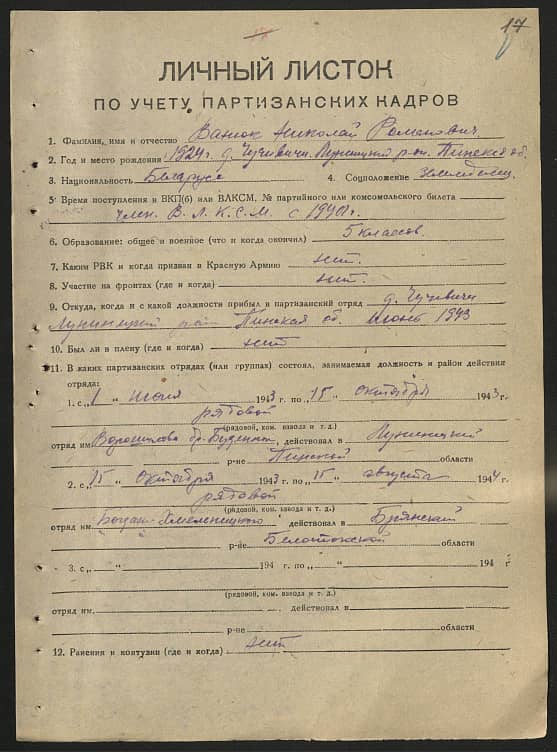 17
ЛИЧНЫЙ ЛИСТОК
ПО УЧЕТУ ПАРТИЗАНСКИХ КАДРОВ
1. Фамилия, имя и отчество Ванюк Николай Романович.
2. Год и место рождения 1924г. д. Чучевичи Лунинецкий р-он. Пинской об.
3. Национальность Беларус 4. Соцположение Земледелец
5. Время поступления в ВКП(б) или ВЛКСМ, № партийного или комсомольского билета
член В.Л.К.С.М. с 1940г.
6. Образование: общее и военное (что и когда окончил) 5 классов.
7. Каким РВК и когда призван в Красную Армию нет.
8. Участие на фронтах (где и когда) нет.
9. Откуда, когда и с какой должности прибыл в партизанский отряд д. Чучевичи
Лунинецкий район Пинская об. Июнь 1943
10. Был ли в плену (где и когда) нет
11. В каких партизанских отрядах (или группах) состоял, занимаемая должность и район действия
отряда:
1. с „1“ июня 1943 г. по „15“ октября 1943 г.
рядовой
(рядовой, ком. взвода и т. д.)
отряд им. Ворошилова бр. Буденного, действовал в Лунинецкий
р-не Пинской области
2. с „15“ октября 1943 г. по „15“ августа 1944 г.
рядовой
(рядовой, ком. взвода и т. д.)
отряд им. Богдан-Хмельницкого действовал в Брянский
р-не Белостокской области
3. с „ “ 194 г. по „ “ 194 г.
(рядовой, ком. взвода и т. д.)
отряд им. действовал в
р-не области
12. Ранения и контузии (где и когда) нет